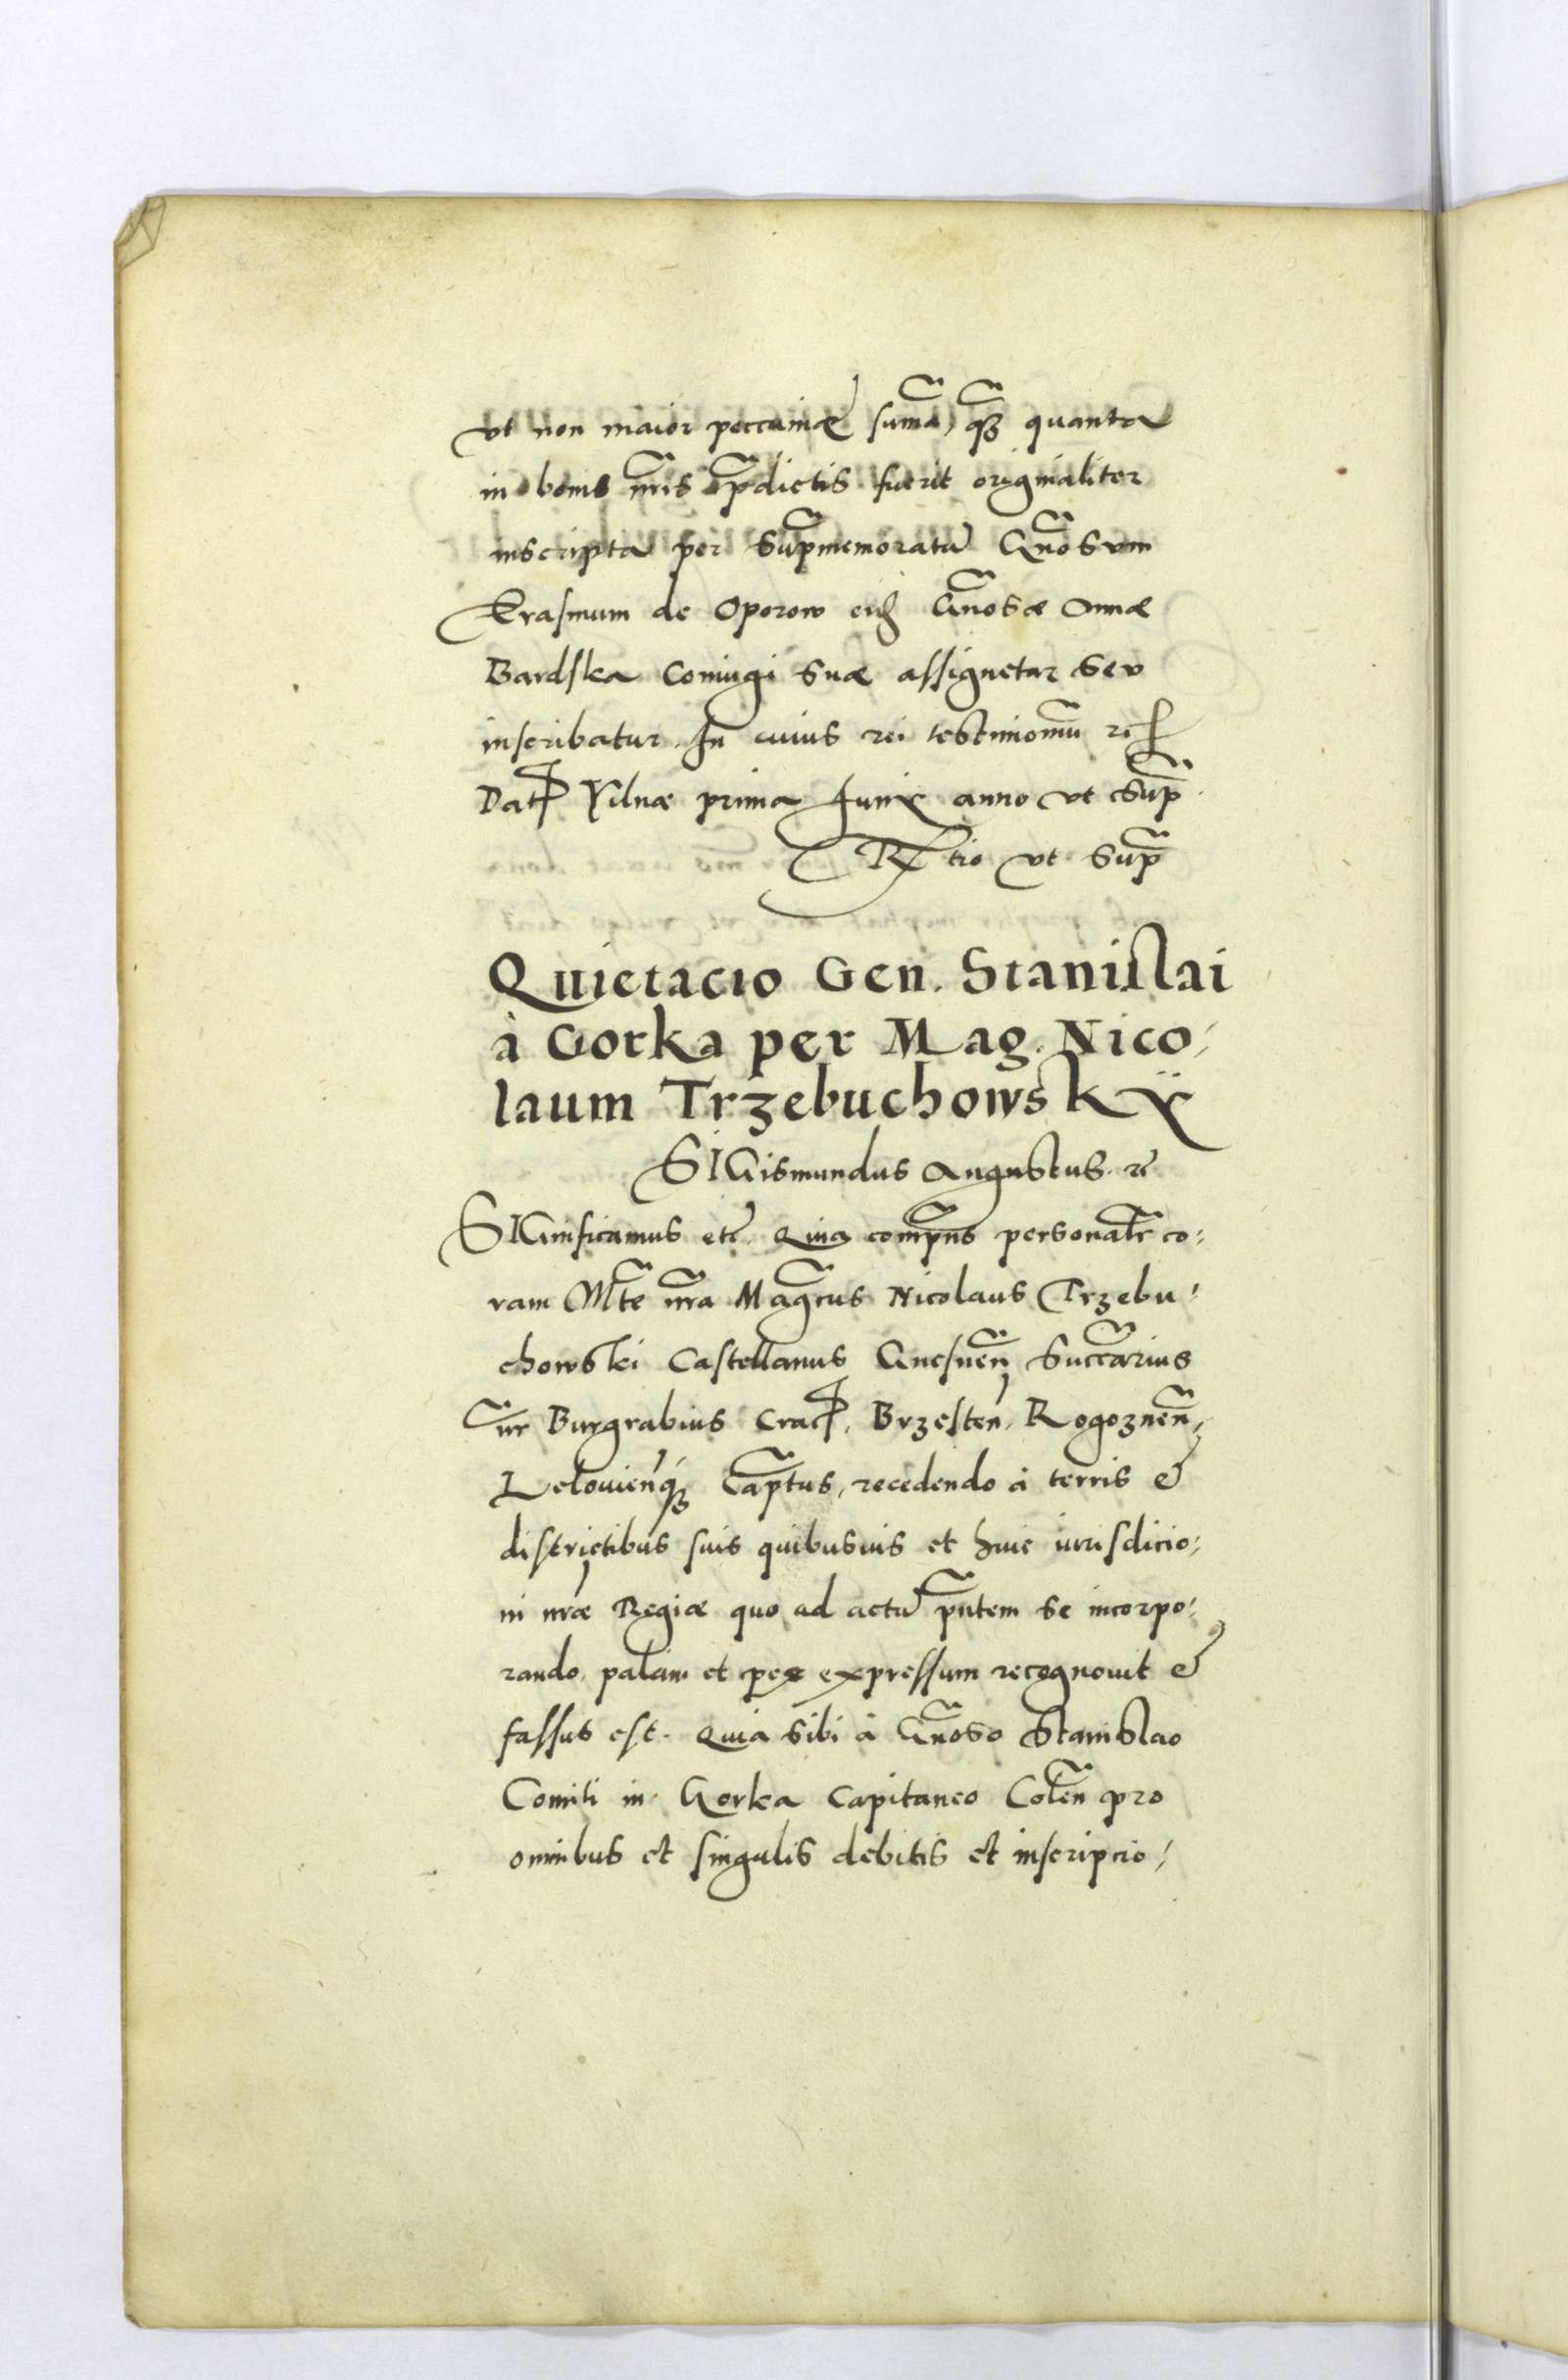 vt non maior peccuniæ suma, qz quanta
in bonis nris pdictis fuerit originaliter
inscripta per supmemoratu Gnosum
Erasmum de Oporow eid Gnosæ Annæ
Bardska Coniugi suæ assignetur seu
inscribatur. In cuius rei testimoniu rc
Dat Vilnæ prima Junij anno vt sup
Rtio vt sup
Quietacio Gen. Stanislai
à Gorka per Mag. Nico,
laum Trzebuchowskÿ
SIGismundus Augustus. rc
SIGnificamus etc. Quia compns personalr co:
ram Mte nra Magcus Nicolaus Trzebu,
chowski Castellanus Gnesnen Succarius
nr Burgrabius Crac. Brzesten, Rogoznen,
Lelouienqz Captus, recedendo à terris &
districtibus suis quibusuis et huic iurisdicio,
ni nræ Regiæ quo ad actu pntem se incorpo,
rando, palam et per expressum recognouit &
fassus est. Quia sibi à Gnoso Stanislao
Comiti in Gorka Capitaneo Colen pro
omnibus et singulis debitis et inscripcio,